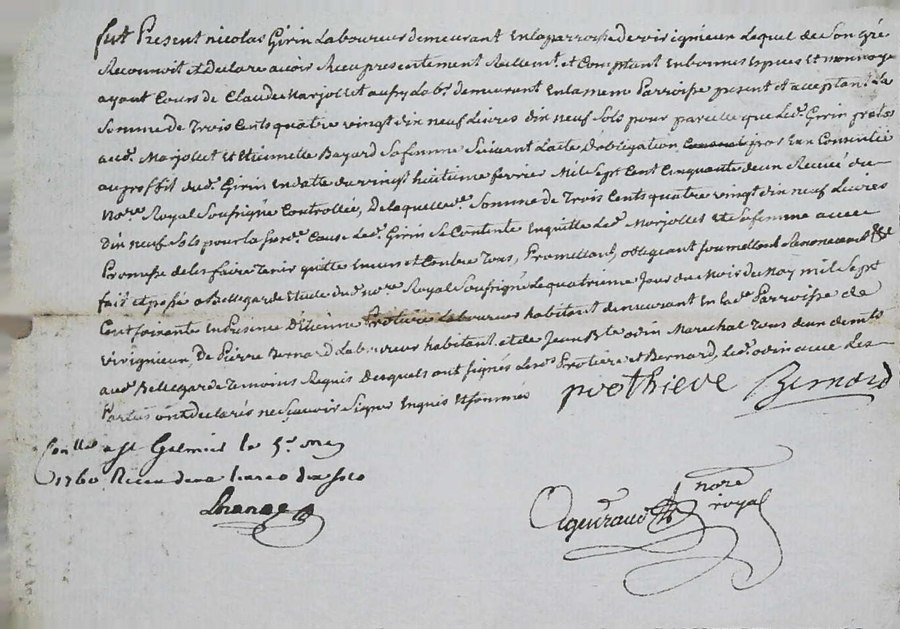 fut Present nicolas Girin Laboureur demeurant en laparroisse de virignieu Lequel de Son gré
Reconnoit et declare avoir Receu presentement Reellemt. et Comptant en bonnes Espices et monnoye
ayant Cours de Claude Marjollet aussy Labr. demeurant en la mem Parroisse present et acceptant La
Somme de Trois Cents quatre vingt dix neuf Livres dix neuf Sols pour pareille que Led. Girin
aud. Marjollet et Etiennette Bayard Sa femme Suivant Lacte Dobligation Consentie
au proffit dud. Girin En datte du vingt huitieme fevrier Mil Sept Cent Cinquante deux Receüe du
Nore. Royal Soussigné Controllée, De laquelle Somme de Trois Cents quatre vingt dix neuf Livres
dix neuf Sols pour la Susd. Cause Led. Girin Se Contente En quitte Led. Marjollet et Sa femme avec
Promesse de les faire Tenir quitte Envers et Contre Tous, Promettant, obligeant Soumettant Renonceant &c
fait et passé a Bellegarde Etude du nore. Royal Soussigné Le quatrieme Jour du Mois du May mil Sept
Cent Soixante En Presence D'Etienne Protiere Laboureur habitant demeurant En lad. Parroisse de
virignieu, De Pierre Bernard Laboureur habitant, et de Jean Bte. odin Marechal Tous deux demts.
aud. Bellegarde Temoins Requis Desquels ont Signés Lesd. Protiere et Bernard, Led. odin avec Les
Parties ont declarés ne Scavoir Signer Enquis et Sommés
prothieve Bernard
Conllé a St Galmier le 5e. may
1760 Receu deux livres dix sols
nore
royal